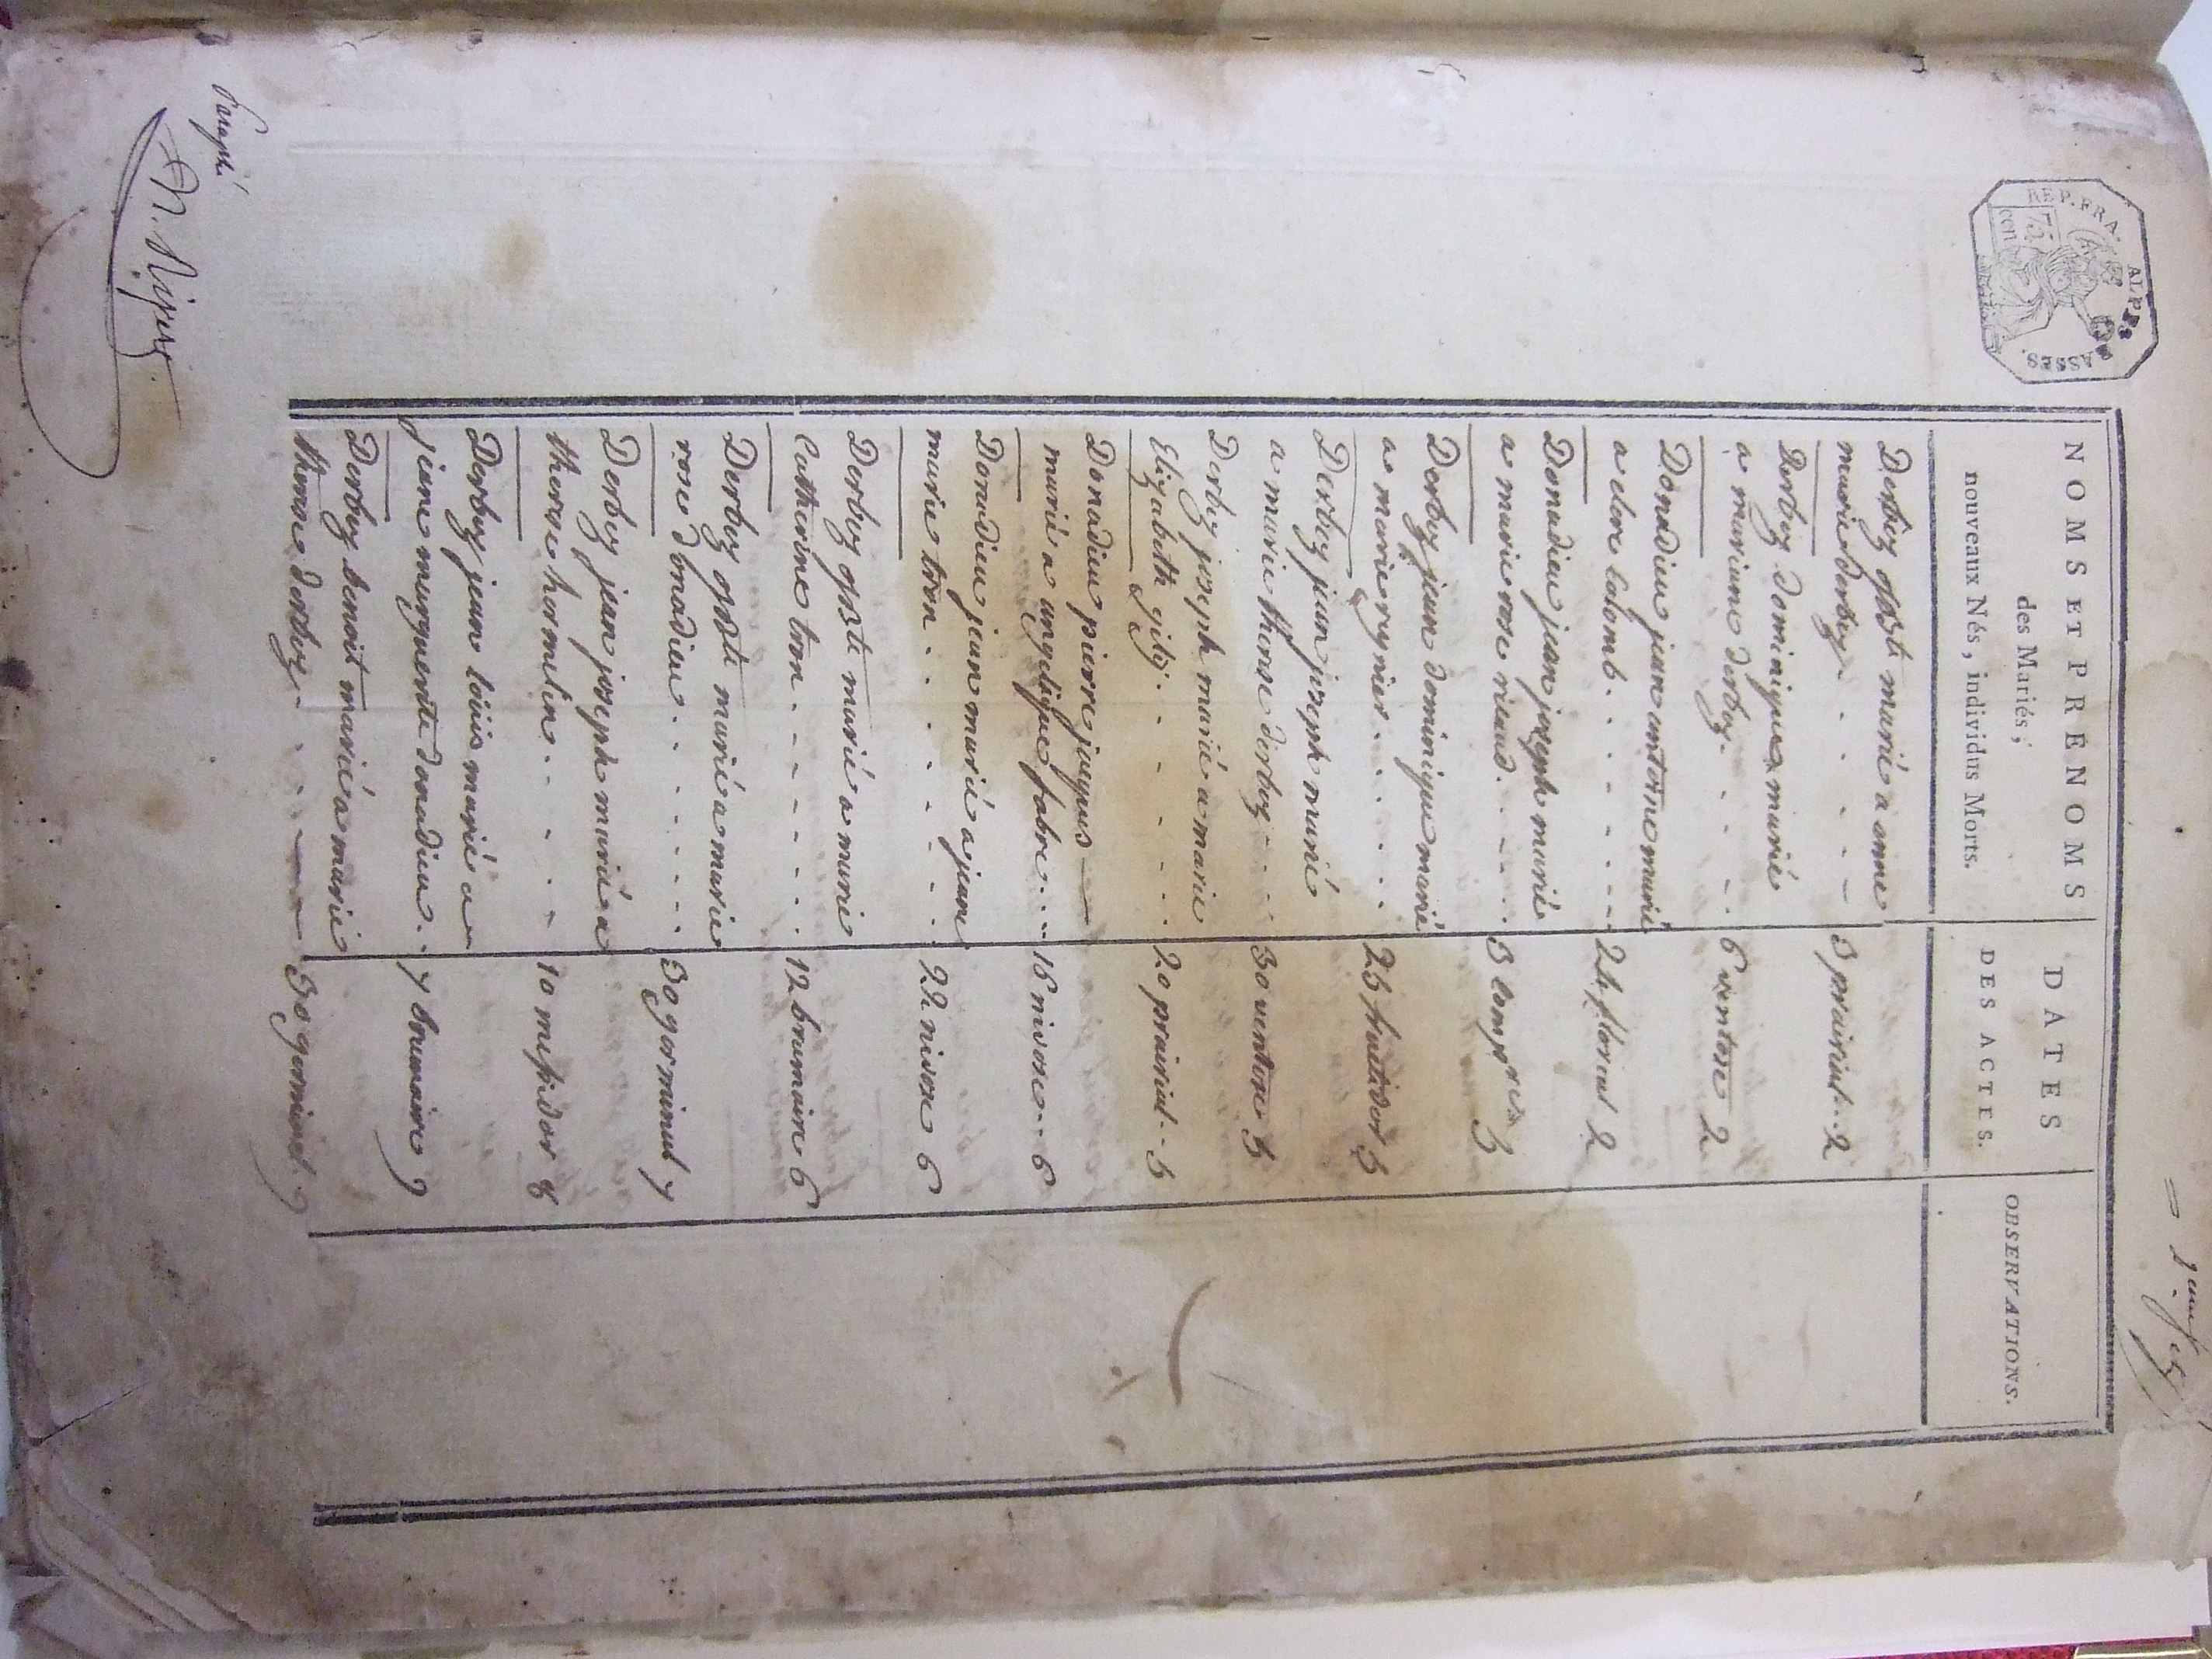 REP. FRA.
ALPES
BASSES.
75
cen
NOMS ET PRÉNOMS
des Mariés ;
nouveaux Nés, individus Morts.
DATES
DES ACTES.
OBSERVATIONS.
Derbez marié a anne
marie derbez . . . . 3 prairial . . 2
Derbez dominique marié
a mariane derbez . . . . 6 ventose 2
Donadieu jean antoine marié
a clere Colomb . . . . . 24 floreal 2
Donadieu jean joseph marié
a marie rose . . . . 3
Derbez jean dominique marié
a marie reynier . . . . . 25 fructidor 5
Derbez jean joseph marié
a marie therese derbez . . . 30 ventose 5
Derbez joseph marié a marie
Elizabeth . . . . 20 prairial . . 5
Donadieu pierre jacques
marié a angelique fabre . . . 16 nivose . . 6
Donadieu jean marié a jeane
marie tron . . . . . 22 nivose 6
Derbez marié a marie
Catherine tron . . . . . 12 brumaire 6
Derbez marié a marie
rose donadieu . . . . . 30 germinal 7
Derbez jean joseph marié a
therese hermelin . . . . 10 messidor 8
Derbez jean loüis marié a
jeane marguerite donadieu . . 7 brumaire 9
Derbez benoit marié a marie
therese derbez . . . 30 germinal 9
Paraphé